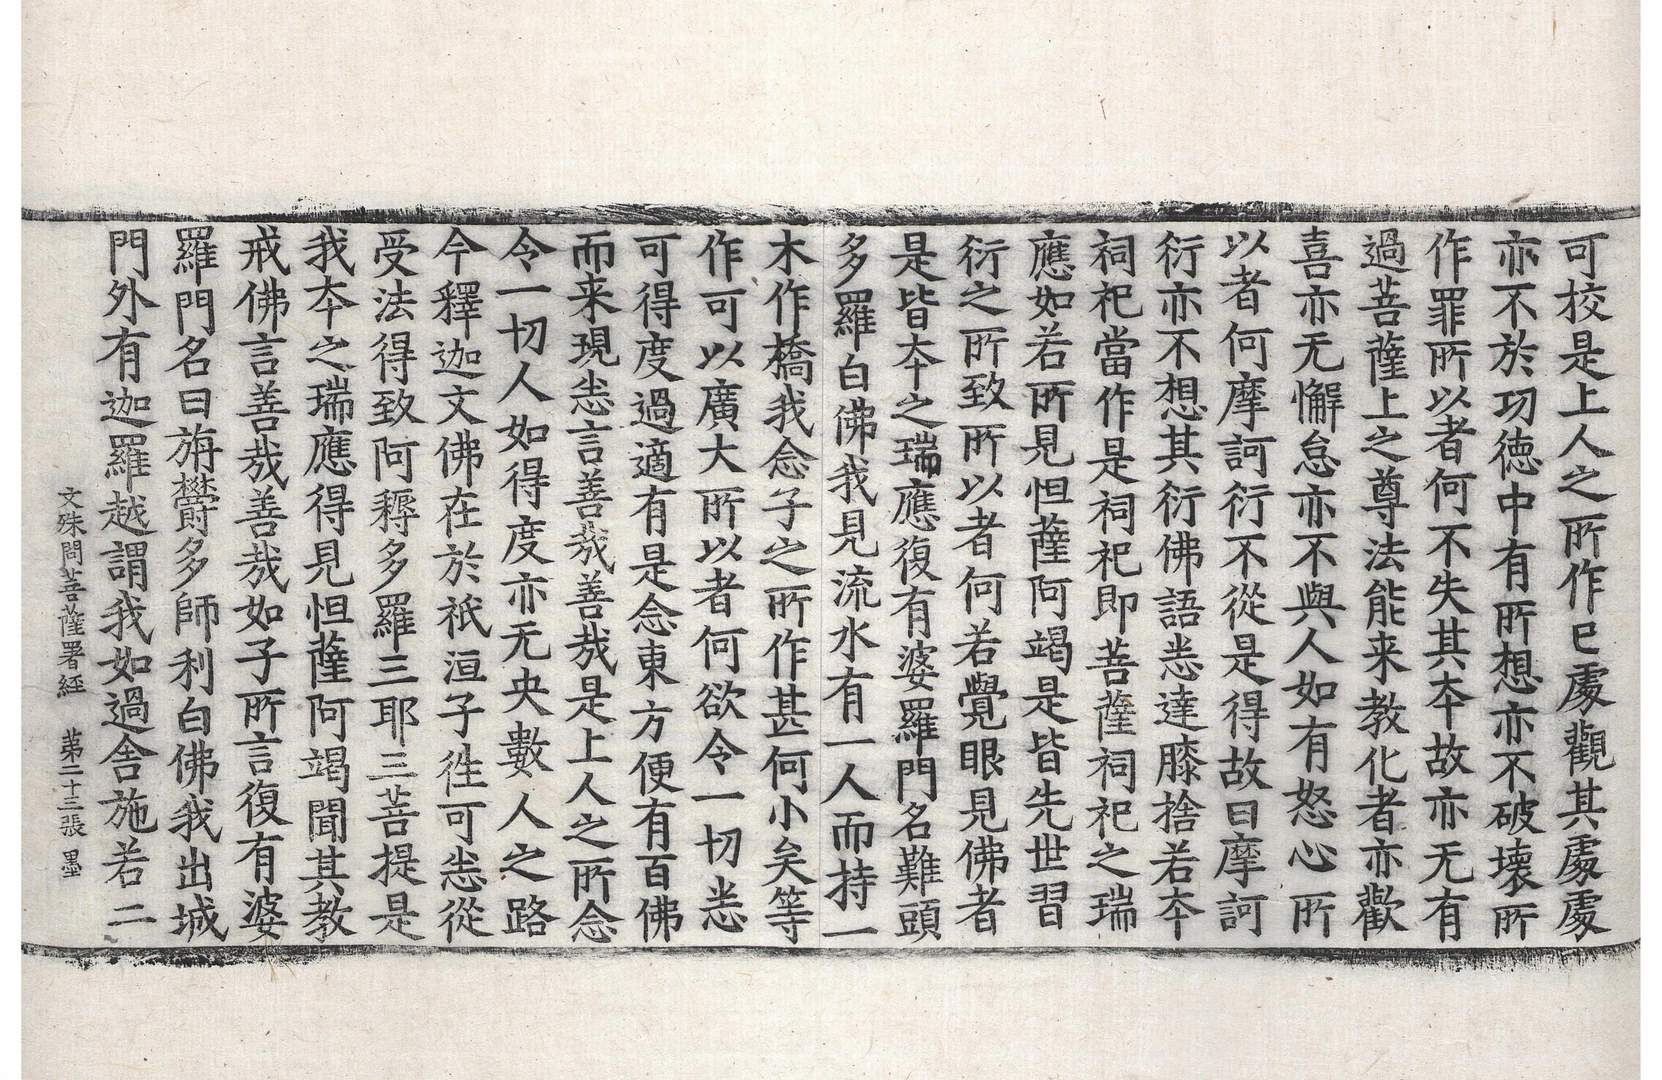 可校是上人之所作已處觀其處處
亦不於功徳中有所想亦不破壞所
作罪所以者何不失其夲故亦无有
過菩薩上之尊法能来教化者亦歡
喜亦无懈怠亦不與人如有怒心所
以者何摩訶衍不從是得故曰摩訶
衍亦不想其衍佛語悉達膝捨若夲
祠祀當作是祠祀即菩薩祠祀之瑞
應如若所見怛薩阿竭是皆先世習
衍之所致所以者何若覺眼見佛者
是皆夲之瑞應復有婆羅門名難頭
多羅白佛我見流水有一人而持一
木作橋我念子之所作甚何小矣等
作可以廣大所以者何欲令一切悉
可得度過適有是念東方便有百佛
而来現悉言善哉善哉是上人之所念
令一切人如得度亦无央數人之路
今釋迦文佛在於祇洹子徃可悉從
受法得致阿耨多羅三耶三菩提是
我夲之瑞應得見怛薩阿竭聞其教
戒佛言善哉善哉如子所言復有婆
羅門名曰旃欝多師利白佛我出城
門外有迦羅越謂我如過舍施若二
文殊問菩薩署経 苐二十三張 墨